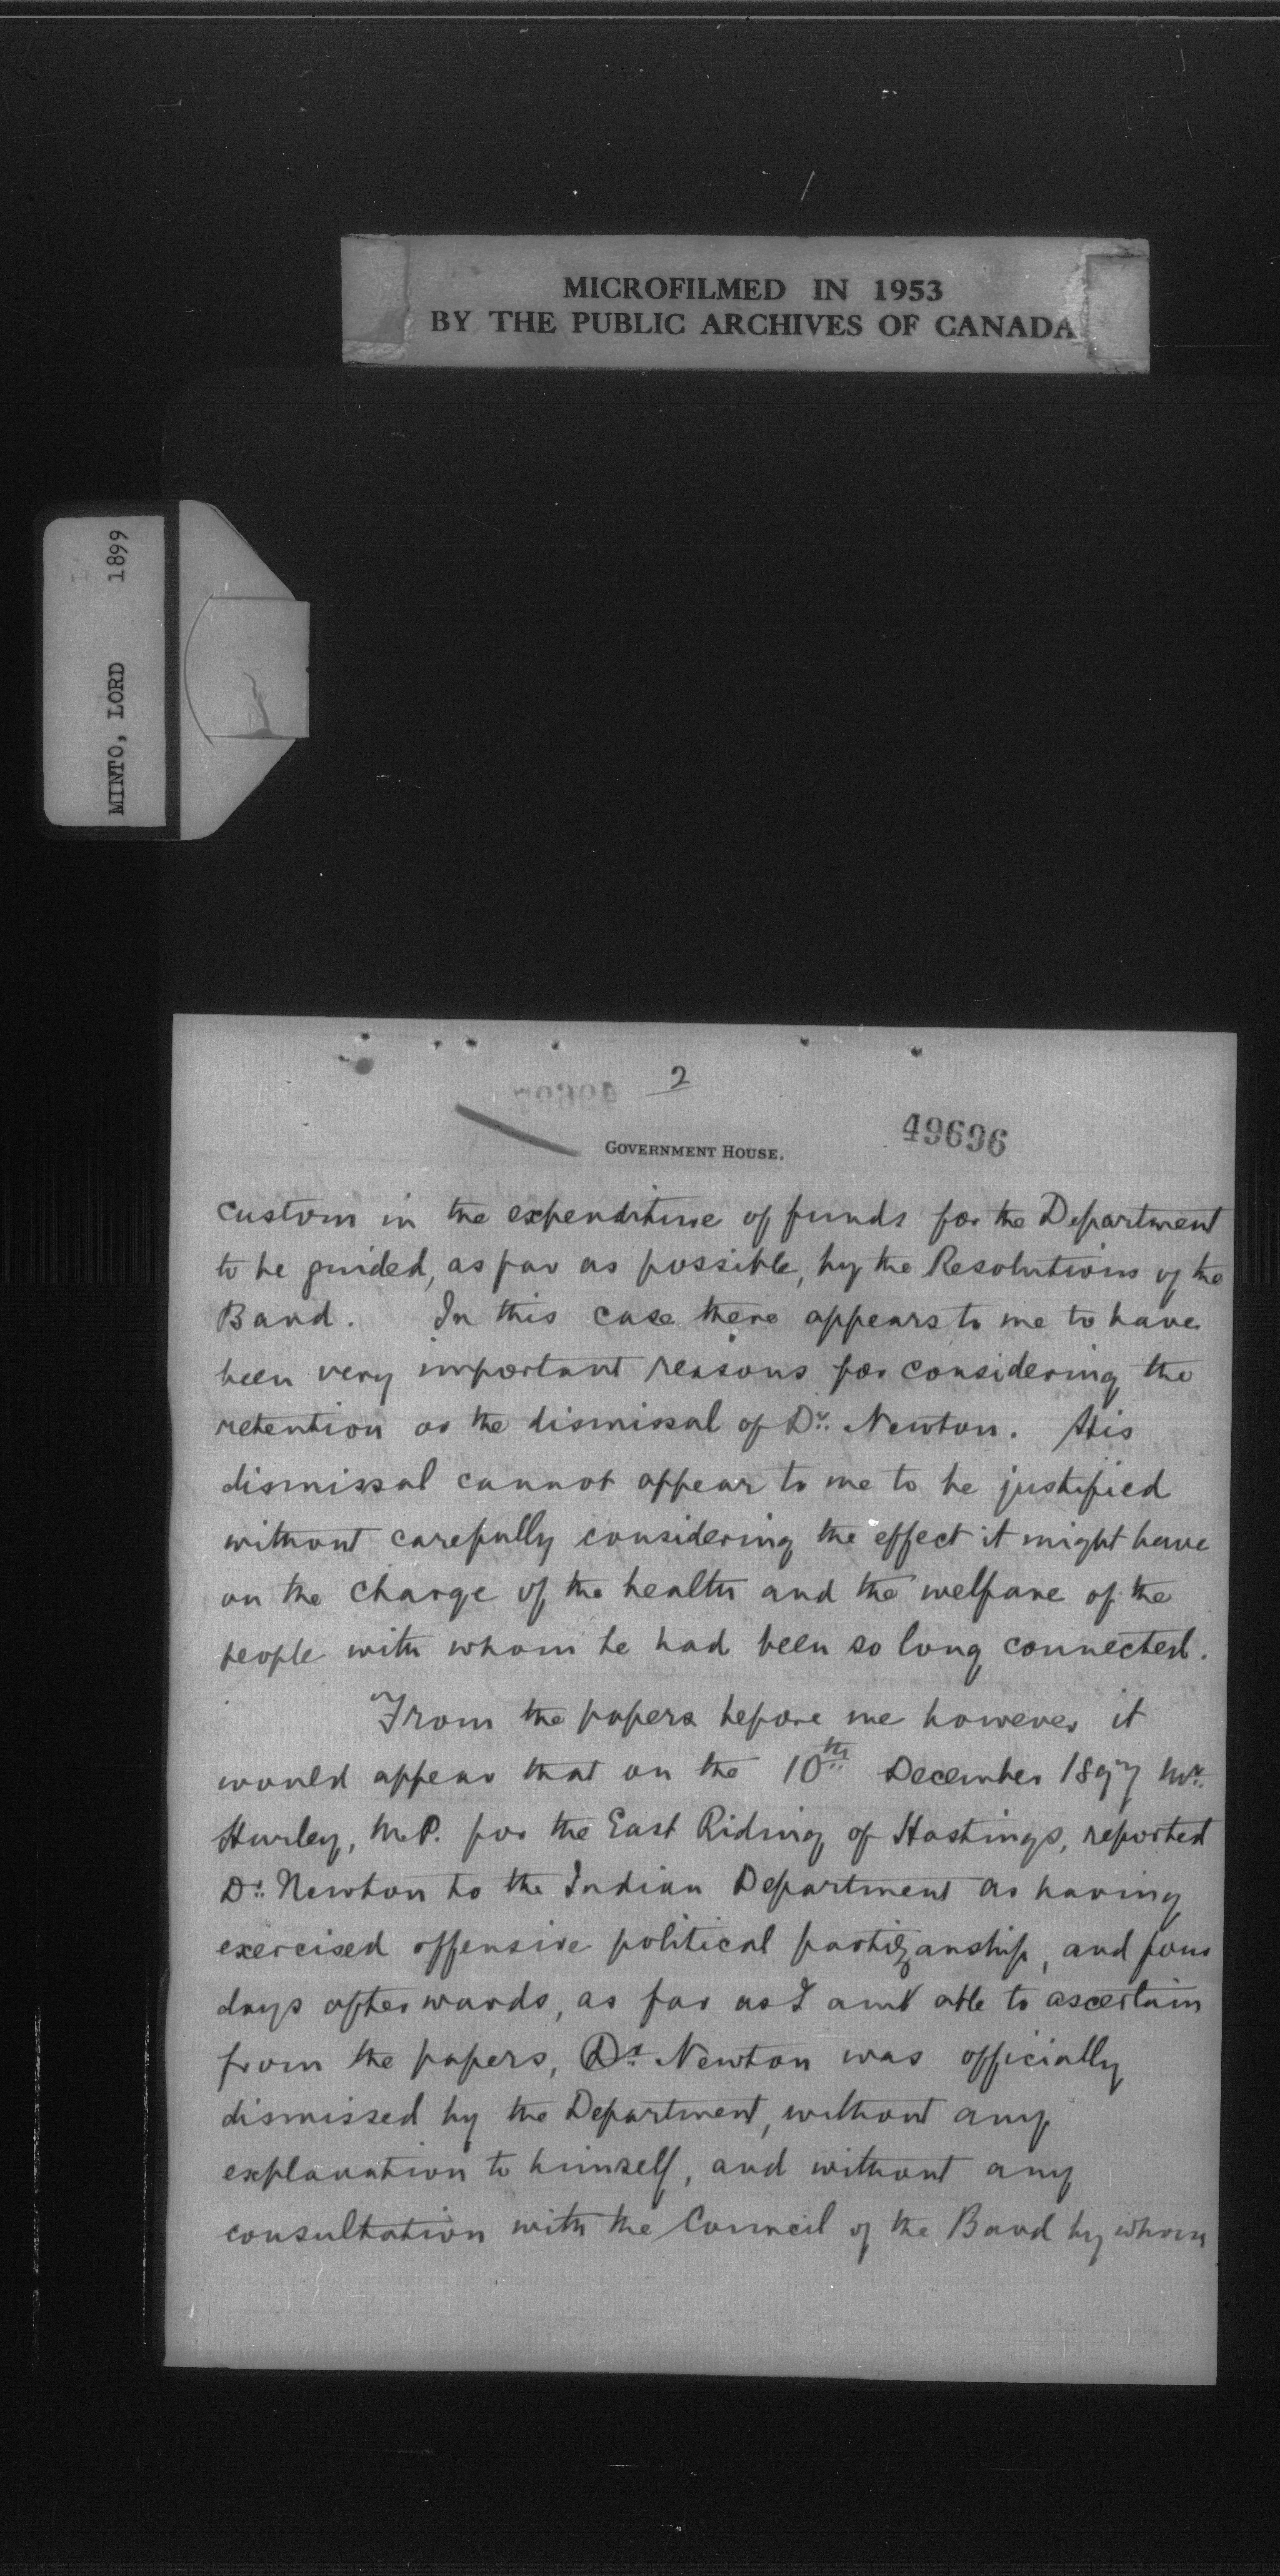 MICROFILMED IN 1953
BY THE PUBLIC ARCHIVES OF CANADA
MINTO, LORD 1899
2
49696
GOVERNMENT HOUSE.
custom in the expenditure of funds for the Department
to be guided, as far as possible, by the Resolutions of the
Band. In this case there appears to me to have
been very important reasons for considering the
retention or the dismissal of Dr. Newton. His
dismissal cannot appear to me to be justified
without carefully considering the effect it might have
on the charge of the health and the welfare of the
people with whom he had been so long connected.
From the papers before me however it
would appear that on the 10th December 1897 Mr.
Hurley, M.P. for the East Riding of Hastings, reported
Dr. Newton to the Indian Department as having
exercised offensive political partizanship, and four
days afterwards, as far as I am able to ascertain
from the papers, Dr. Newton was officially
dismissed by the Department, without any
explanation to himself, and without any
consultation with the Council of the Band by whom